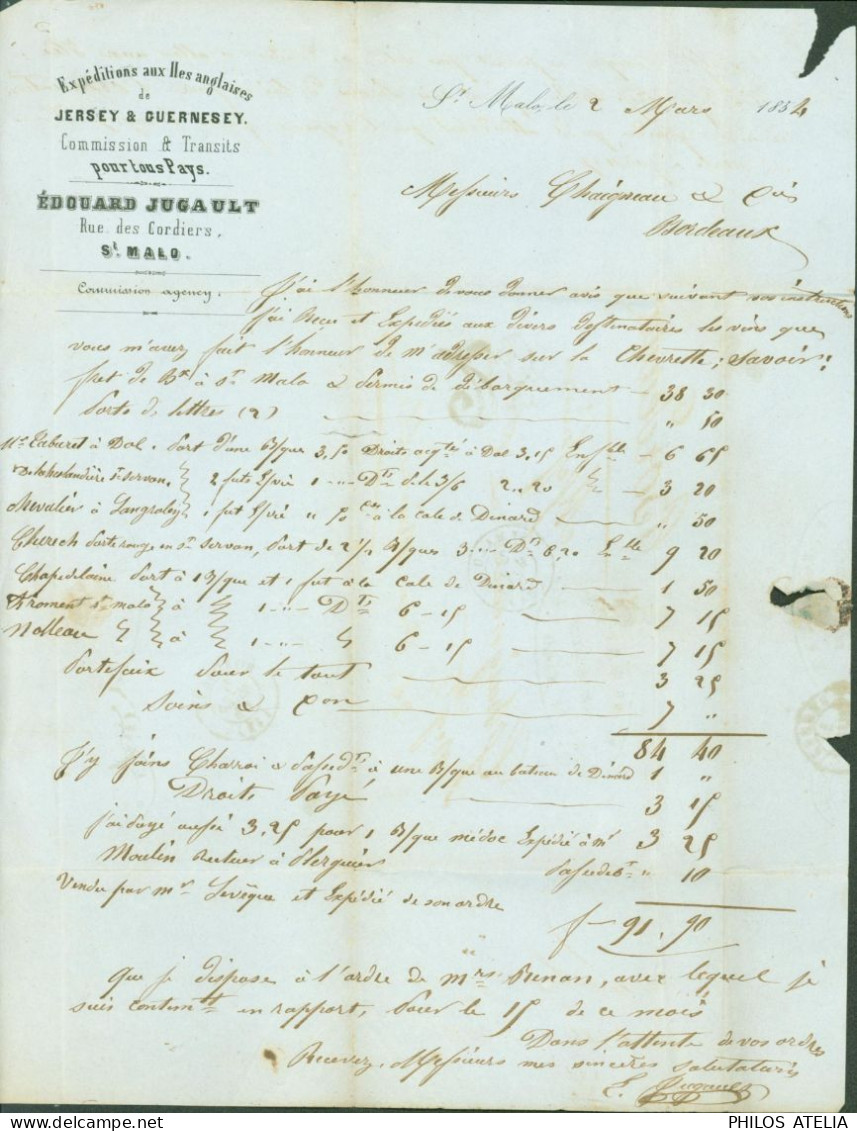 Expéditions aux Iles anglaises
de
JERSEY & GUERNESEY.
Commission & Transits
pour tous Pays.
ÉDOUARD JUGAULT
Rue des Cordiers,
St. MALO.
Commission agency.
St. Malo, le 2 Mars 1854
Messieurs Chaigneau &
Bordeaux
J'ai l'honneur de vous donner avis que suivant vos instructions
J'ai Reçu et Expédiés aux divers destinataires les vins que
vous m'avez fait l'honneur de m'adresser sur la Chevrette; savoir:
fret de Bx à St Malo & Permis de débarquement 38 30
Ports de lettres (2) " 50
à Dol. Port d'une B/que 3,50 Droits à Dol 3,15 Ensble 6 65
St Servan, 2 futs 3/6 2,,20 3 20
Chevalier à 1 fut " 50 à la cale de Dinard " 50
Porte rouge en St Servan, Port de 2 1/2 B/ques 3 Dts 6,20 Eble 9 20
Chapedelaine Port à 1 B/que et 1 fut à la cale de Dinard 1 50
St Malo à 1 Dts 6-15 7 15
Nolleau à 1 6-15 7 15
Portefaix Pour le tout 3 25
Soins & Con 7 "
84 40
J'y joins Charroi & à une B/que au bateau de Dinard 1 "
Droits Payé 3 15
j'ai payé aussi 3,25 pour 1 B/que médoc Expédié à Mr 3 25
Moulin à Plerguer " 10
Vendu par Mr Levêque et Expédié de son ordre
f 91,90
Que je dispose à l'ordre de Mrs, avec lequel je
suis contentt en rapport, Pour le 15 de ce mois
Dans l'attente de vos ordres
Recevez, Messieurs mes sincères salutations
E. Jugault
PHILOS ATELIA